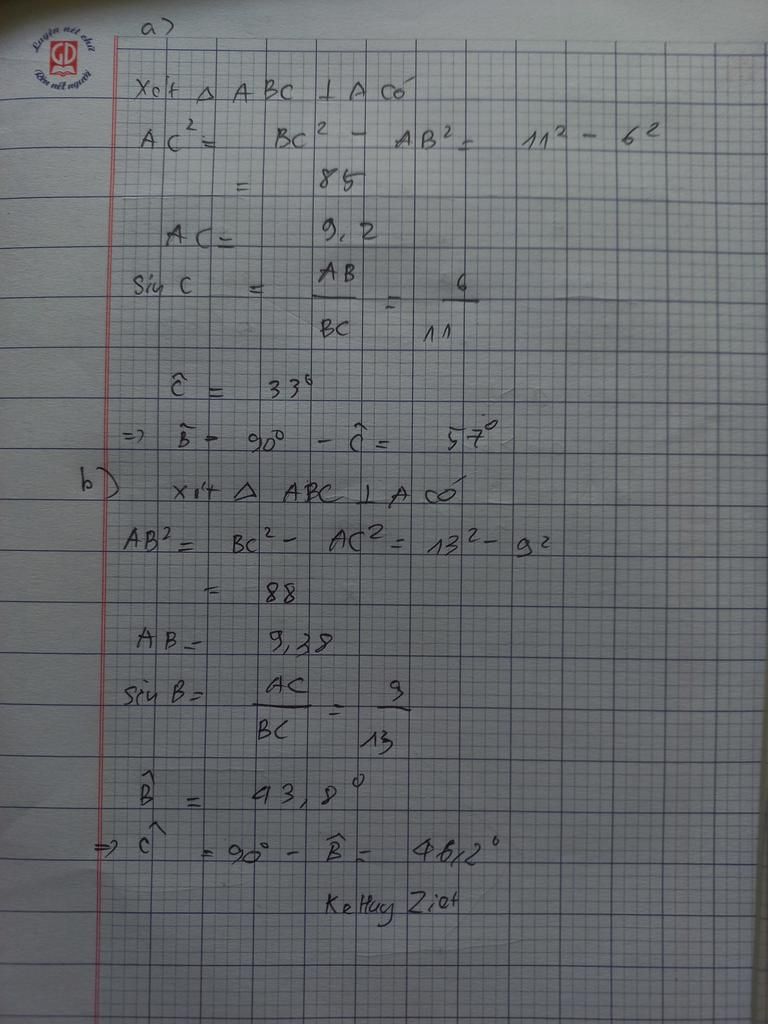 Luyện nét chữ
GD
Rèn nết người
a)
Xét Δ ABC ⊥ A có
AC² = BC² - AB² = 11² - 6²
= 85
AC = 9,2
Sin C = AB/BC = 6/11
Ĉ = 33°
=> B̂ = 90° - Ĉ = 57°
b) Xét Δ ABC ⊥ A có
AB² = BC² - AC² = 13² - 9²
= 88
AB = 9,38
Sin B = AC/BC = 9/13
B̂ = 43,8°
=> Ĉ = 90° - B̂ = 46,2°